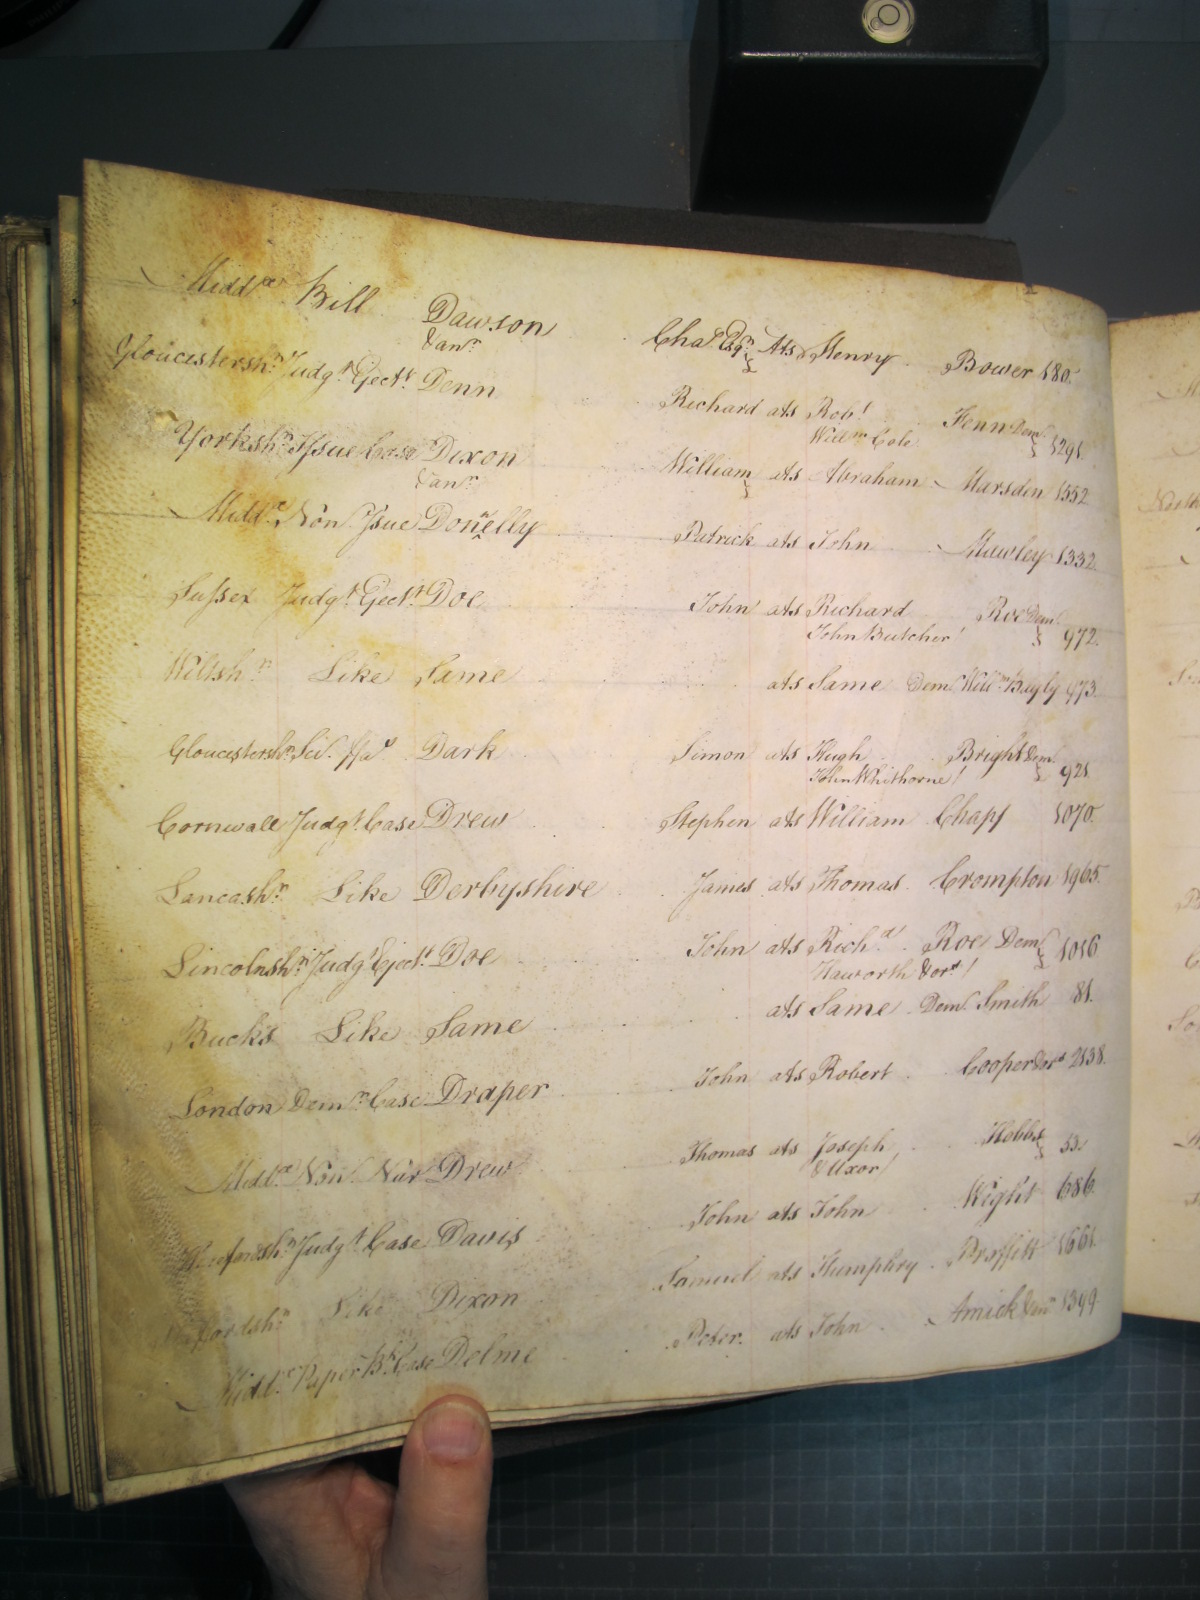 Midd.x Bill Dawson Cha.s Esq.r Ats Henry Bower 180.
& an.r
Gloucestersh.r Judg.t Eject.t Denn Richard ats Rob.t Fenn Dem.
Will.m Cole 1291
Yorksh.r Issue Case Dixon William ats Abraham Marsden 1552
& an.r
Midd.x Non Issue Donnelly Patrick ats John Mawley 1332.
Sussex Judg.t Eject.t Doe John ats Richard Roe Dem.
John Butcher 972.
Wiltsh.r Like Same ats Same Dem. Will.m Bayly 973
Gloucestersh.r Sci. fa.s Dark Simon ats Hugh Bright Dem.
John Whithorne 921
Cornwall Judg.t Case Drew Stephen ats William Chaps 1070.
Lancash.r Like Derbyshire James ats Thomas Crompton 1965.
Lincolnsh.r Judg.t Eject.t Doe John ats Rich.d Roe Dem.
Haworth & or.s 1016
Bucks Like Same ats Same Dem. Smith 81.
London Dem.r Case Draper John ats Robert Cooper & or.s 2138.
Midd.x Non. Nar Drew Thomas ats Joseph Hobbs 53.
& Uxor
Judg.t Case Davis John ats John Wight 686.
Like Dixon Samuel ats Humphry 1661.
Midd.x Paper B.k Case Delme Peter ats John Amick & an.r 1399